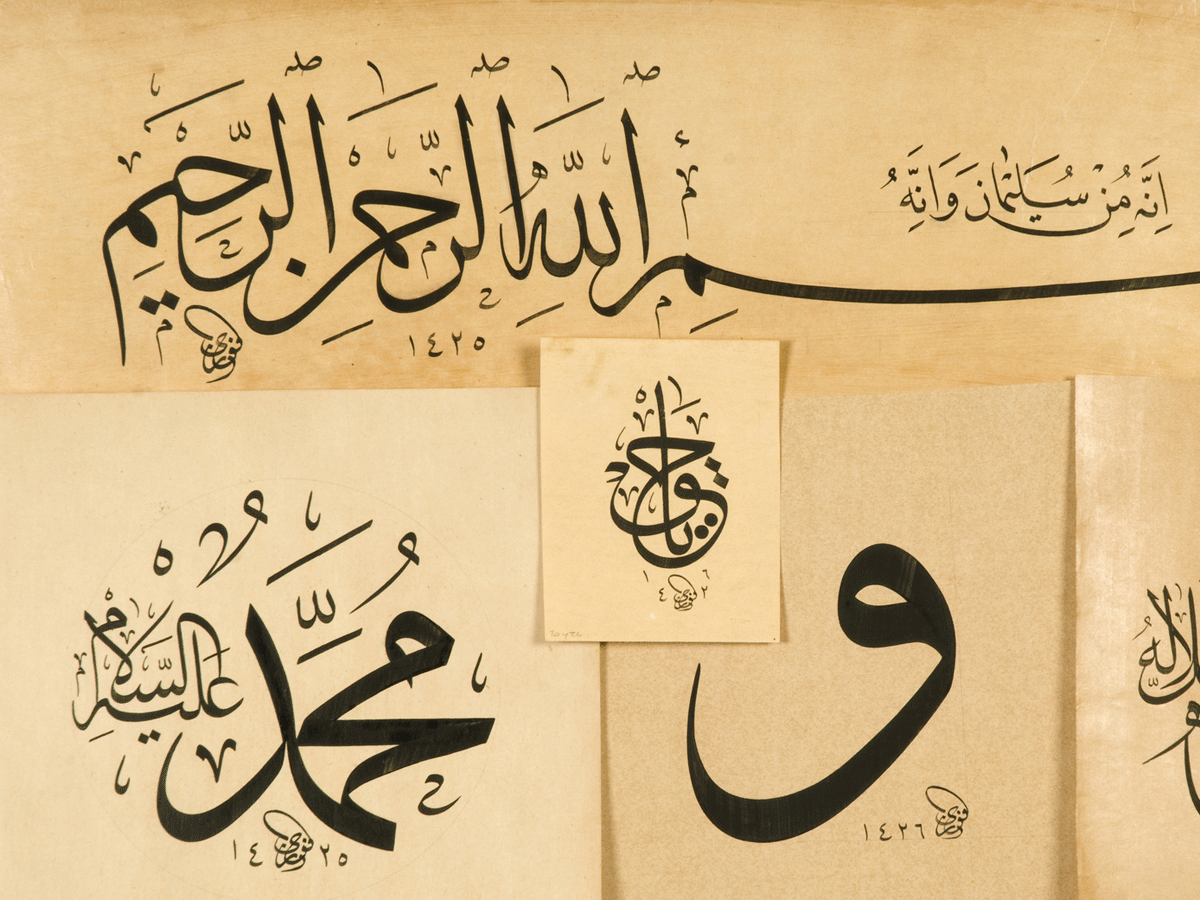 اِنَّهُ مِنْ سُلَيْمٰانَ وَاِنَّهُ
بسم الله الرحمن الرحيم
١٤٢٥
ياحي
١٤٢٦
محمد
عليه السلام
١٤٢٥
و
١٤٢٦